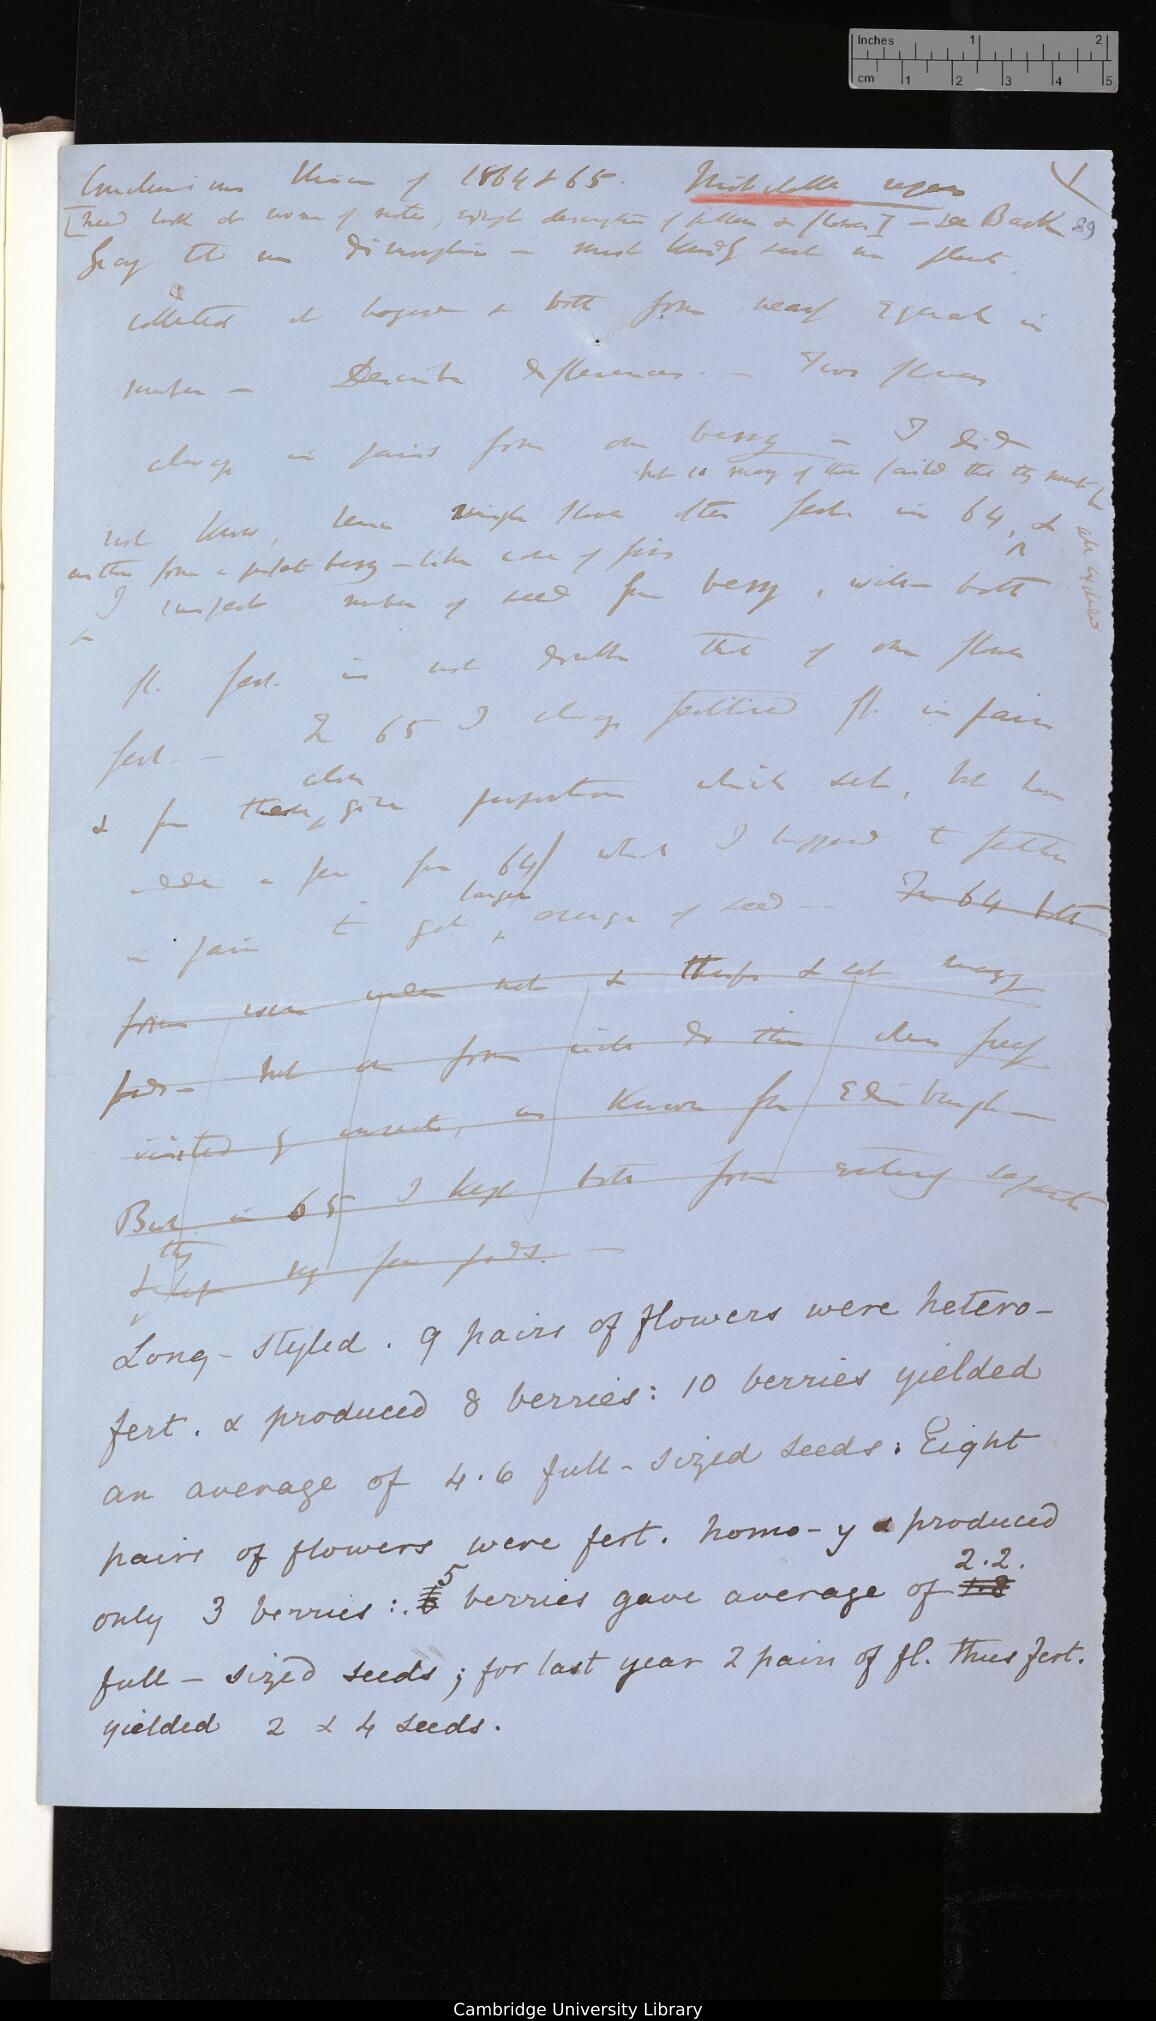 Inches 1 2
cm 1 2 3 4 5
1
Conclusions of 1864 & 65. Mitchella repens
[need look at none of notes, except description of pollen & flowers] — See Back
89
Gray on dimorphism — most kindly sent me plants
collected at & both forms nearly equal in
number — Describe differences — Two flowers
always in pairs form one berry — I did
but so many of these failed that they must be
not know, hence single flower often fert. in 64, &
another form a perfect berry — like case of
all excluded
& I suspect number of seed from berry, when both
fl. fert. is not double that of one flower
fert. — In 65 I always fertilised fl. in pairs
& from these alone give proportion which set, but have
added a few from 64 which I happened to fertilise
in pairs to get larger average of seed — In 64 both
forms were under net & & set many
pods — but one form does this when freely
visited by insects, as known from Edinburgh —
But in 65 I kept both forms entirely separate
& they set very few pods. —
Long-styled. 9 pairs of flowers were hetero-
fert. & produced 8 berries: 10 berries yielded
an average of 4.6 full-sized seeds: Eight
pairs of flowers were fert. homo-y & produced
2.2.
only 3 berries: 5 berries gave average of 1.8
full-sized seeds; for last year 2 pair of fl. thus fert.
yielded 2 & 4 seeds.
Cambridge University Library